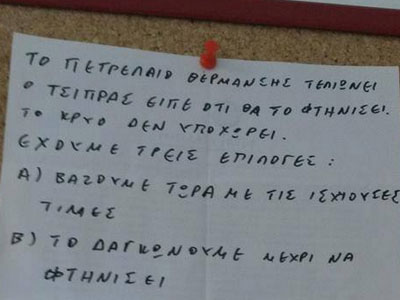 ΤΟ ΠΕΤΡΕΛΑΙΟ ΘΕΡΜΑΝΣΗΣ ΤΕΛΙΩΝΕΙ
Ο ΤΣΙΠΡΑΣ ΕΙΠΕ ΟΤΙ ΘΑ ΤΟ ΦΤΗΝΙΣΕΙ.
ΤΟ ΚΡΥΟ ΔΕΝ ΥΠΟΧΩΡΕΙ.
ΕΧΟΥΜΕ ΤΡΕΙΣ ΕΠΙΛΟΓΕΣ:
Α) ΒΑΖΟΥΜΕ ΤΩΡΑ ΜΕ ΤΙΣ ΙΣΧΙΟΥΣΕΣ
ΤΙΜΕΣ
Β) ΤΟ ΔΑΓΚΩΝΟΥΜΕ ΜΕΧΡΙ ΝΑ
ΦΤΗΝΙΣΕΙ